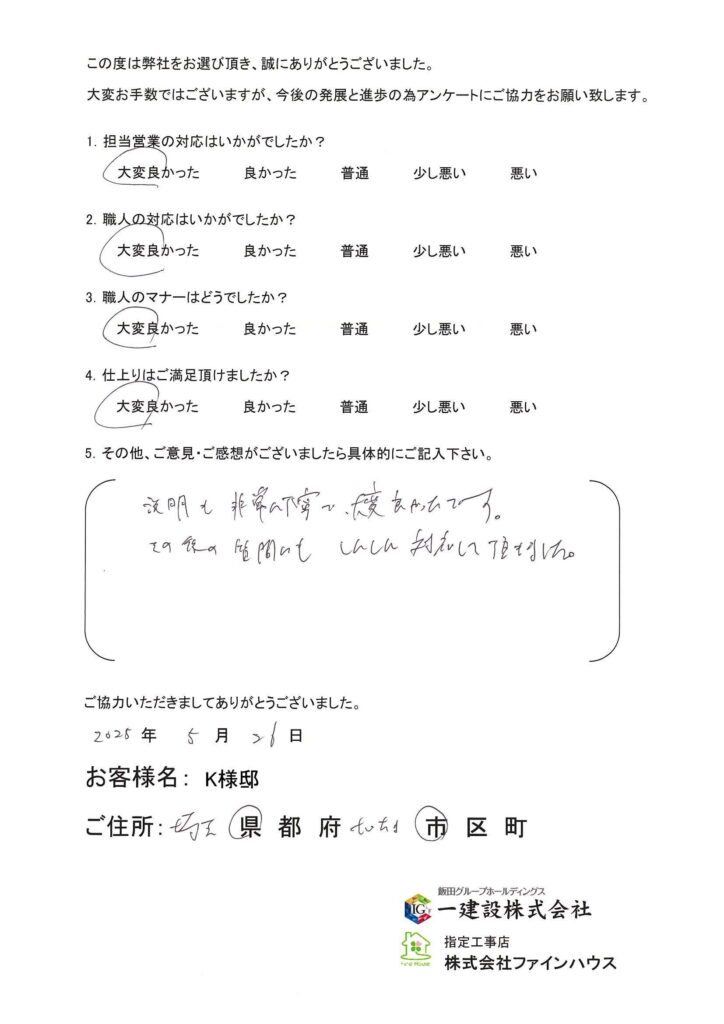 この度は弊社をお選び頂き、誠にありがとうございました。
大変お手数ではございますが、今後の発展と進歩の為アンケートにご協力をお願い致します。
1. 担当営業の対応はいかがでしたか？
大変良かった 良かった 普通 少し悪い 悪い
2. 職人の対応はいかがでしたか？
大変良かった 良かった 普通 少し悪い 悪い
3. 職人のマナーはどうでしたか？
大変良かった 良かった 普通 少し悪い 悪い
4. 仕上りはご満足頂けましたか？
大変良かった 良かった 普通 少し悪い 悪い
5. その他、ご意見・ご感想がございましたら具体的にご記入下さい。
説明も 非常に丁寧で、大変良かったです。
その後の 質問にも しんしん 対応して頂きました。
ご協力いただきましてありがとうございました。
2025 年 5 月 26 日
お客様名： K様邸
ご住所： 埼玉 県 都 府 市 区 町
飯田グループホールディングス
IG 一建設株式会社
指定工事店
株式会社ファインハウス